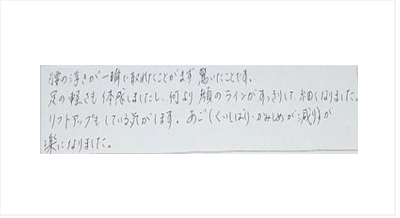 腰の浮きが一瞬で取れたことがまず驚いたことです。
足の軽さも体感しましたし、何より顔のラインがすっきりして、細くなりました。
リフトアップもしている気がします。あご(くいしばり・かみしめが減り)が
楽になりました。